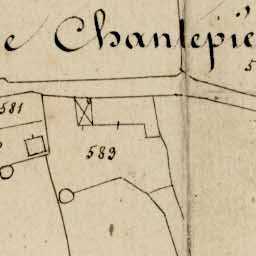 e Chantepie
5
581
583